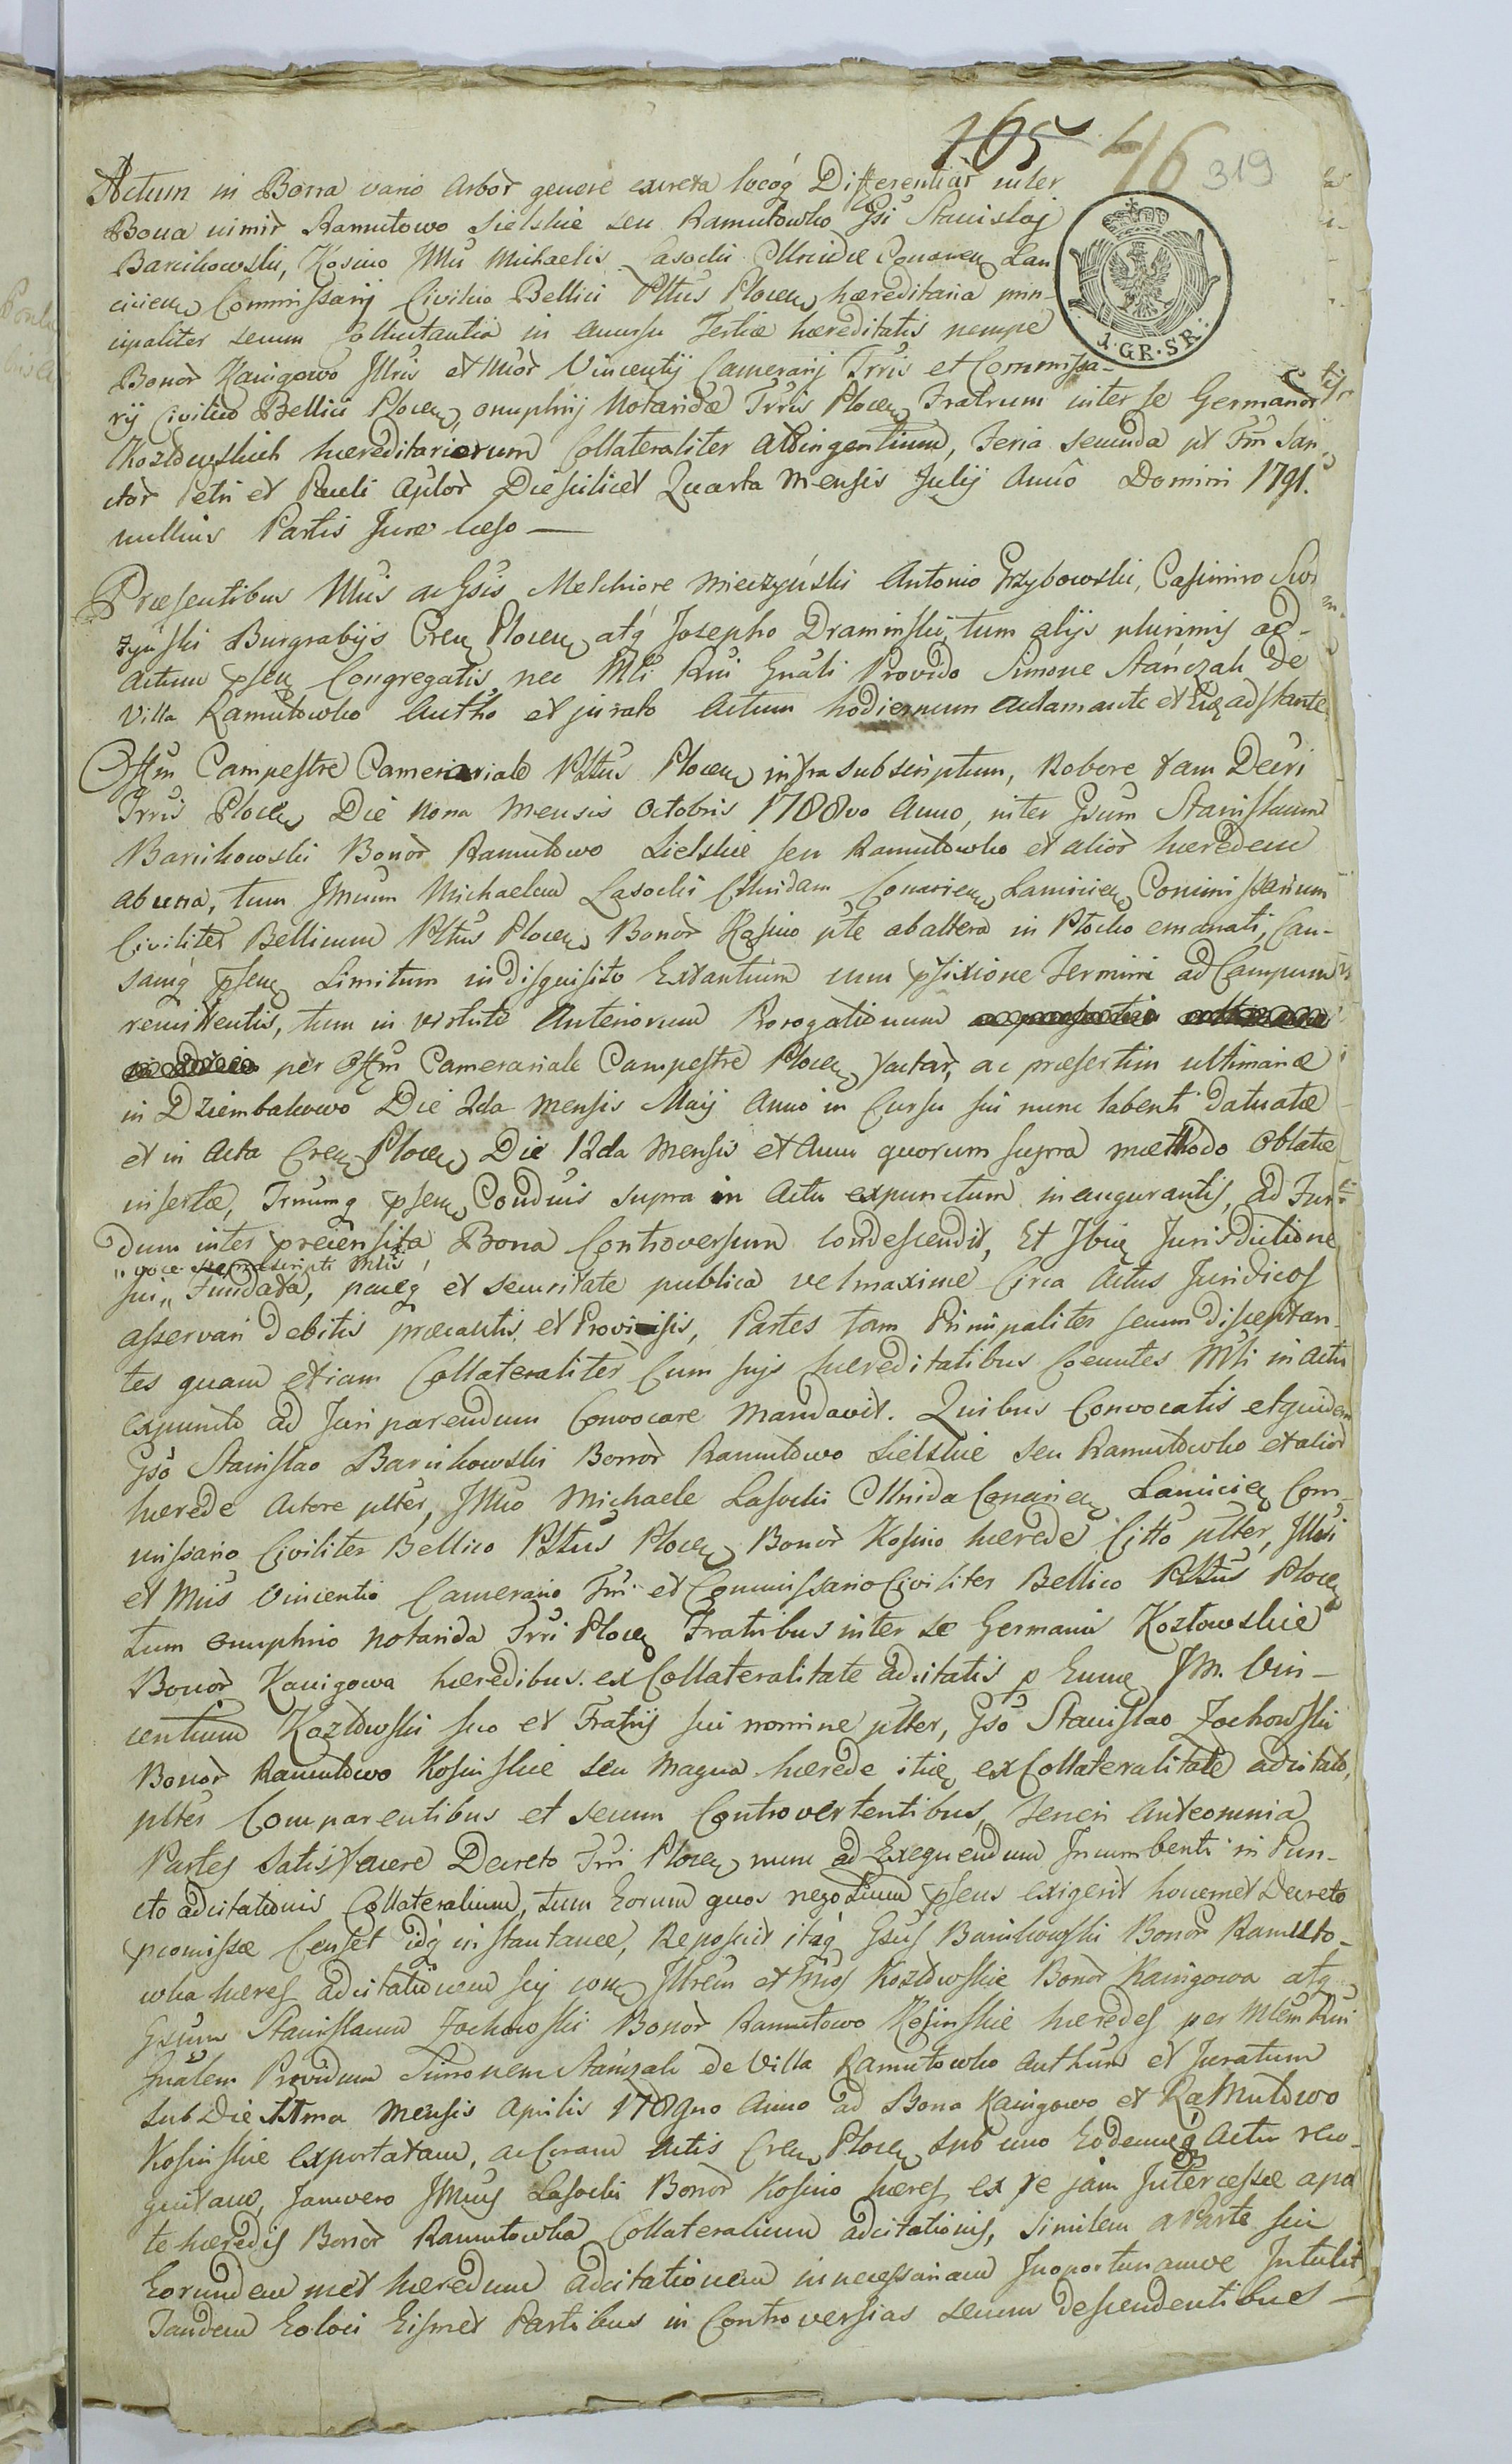 165 46 319
Actum in Borra vario Arbor genere excreta locoq Differentiar inter
Bona nimir Ramutowo Sielskie seu Ramutowko Gsi Stanislai
Barcikowski, Kosino Illmi Michaelis Lasocki Mundae Conarien Lan
cicien Commissarij Civiliter Bellici Pltus Plocen, haereditaria prin-
cipaliter secum Colluctantia in accursu Tertiae haereditatis nempe
Bonor Kanigowo Illris et Mcor Vincentij Camerarij Trris et Commissa-
rij Civilico Bellici Plocen, onuphrij Notaridae Trris Plocen Fratrum inter se Germanor
Kozłowskich haereditariorum Collateraliter Attingentium, Feria secunda pt Fm San
ctor Petri et Pauli Aplor Die scilicet Quarta Mensis Julij Anno Domini 1791.
nullius Partis Jure laeso —
Praesentibus Mcis ac Gsis Melchiore Mieczyński Antonio Grzybowski, Casimiro
Burgrabijs Cren Plocen atq Josepho Draminski, tum alijs plurimis ad
Actum psen Congregatis nec Mli Rni Gnali Provido Simone Stańczak De
Villa Ramutowko Autho et jurato Actum hodiernum aclamante et adstante
Offm Campestre Camerariale Pltus Plocen infrasubscriptum, Robore tam Decri
Trris Plocen Die Nona Mensis Octobris 1788vo Anno, inter Gsum Stanislaum
Barcikowski Bonor Ramutowo Sielskie seu Ramutowko et alior haeredem
ab una, tum Illmum Michaelem Lasocki Mundam Conarien Lancicien Commissarium
Civiliter Bellicum Pltus Plocen Bonor Kosino pte ab altera in Płocko emanati, Cau-
samq psen Limitum indisquisito Extantium cum pfixione Termini ad Campum
remittentis, tum in virtute Anteriorum Prorogationum
per Offm Camerariale Campestre Plocen factar, ac praesertim ultimariae
in Dziembakowo Die 2da Mensis Maij Anno in Cursu sui nunc labenti Datuatae
et in Acta Cren Plocen Die 12da Mensis et Anni quorum supra methodo Oblatae
insertae, Trnumq psen Conduis supra in Actu expunctum inaugurantis, ad Fun
dum inter praecensita Bona Controversum Condescendit, Et Ibiq Jurisdictione
voce suprascripti Mlis
sui „ Fundata, paceq et securitate publica vel maxime Circa Actus Juridicos
asservari Debitis praecautis et Provisis, Partes tam Principaliter secum disceptan-
tes quam etiam Collateraliter Cum suis haereditatibus Coeuntes Mli in Actu
expuncto ad Juri parendum Convocare Mandavit. Quibus Convocatis et quidem
Gso Stanislao Barcikowski Bonor Ramutowo Sielskie seu Ramutowko et alior
haerede Actore pltter, Illmo Michaele Lasocki Munda Conarien Lancicien Com-
missario Civiliter Bellico Pltus Plocen Bonor Kosino haerede Citto pltter, Illri
et Mcis Vincentio Camerario Trri et Commissario Civiliter Bellico Pltus Plocen
tum onuphrio Notarida Trri Plocen Fratribus inter se Germanis Kozłowskie
Bonor Kanigowa haeredibus. ex Collateralitate adcitatis p Eunq JM. Vin-
centium Kozłowski suo et Fratris sui nomine pltter, Gso Stanislao Zochowski
Bonor Ramutowo Kosinskie seu Magna haerede itiq ex Collateralitate adcitato,
pltter Comparentibus et secum Controvertentibus, Teneri Anteomnia
Partes satisfacere Decreto Trri Plocen nunc ad Exequendum Incumbenti in Pun-
cto adcitationis Collateralium, tum Eorum quos negotium psens exigerit hocemet Decreto
promissae Censet idq instantanee, Reposuit itaq Gsus Barcikowski Bonor Ramuto-
wka haeres adcitationem sej con Illrem et Mcos Kozłowskie Bonor Kanigowa atq
Gsum Stanislaum Zochowski Bonor Ramutowo Kosinskie haeredes per Mlem Rni
Gnalem Providum Simonem Stańczak de Villa Ramutowko Authum et Juratum
sub Die Mensis Aprilis 1789no Anno ad Bona Kanigowo et Ramutowo
Kosinskie exportatam, ac Coram Actis Cren Plocen sub uno Eodemq Actu reco-
gnitam, Jamvero Illmus Lasocki Bonor Kosino haeres ex re jam Intercessae a par
te haeredis Bonor Ramutowka Collateralium adcitationis, Similem a Parte sui
Eorundemmet haeredum adcitationem innecessariam Inoportunamve Intulit
Tandem Eoloci Eismet Partibus in Controversias secum descendentibus —
1. GR. SR.